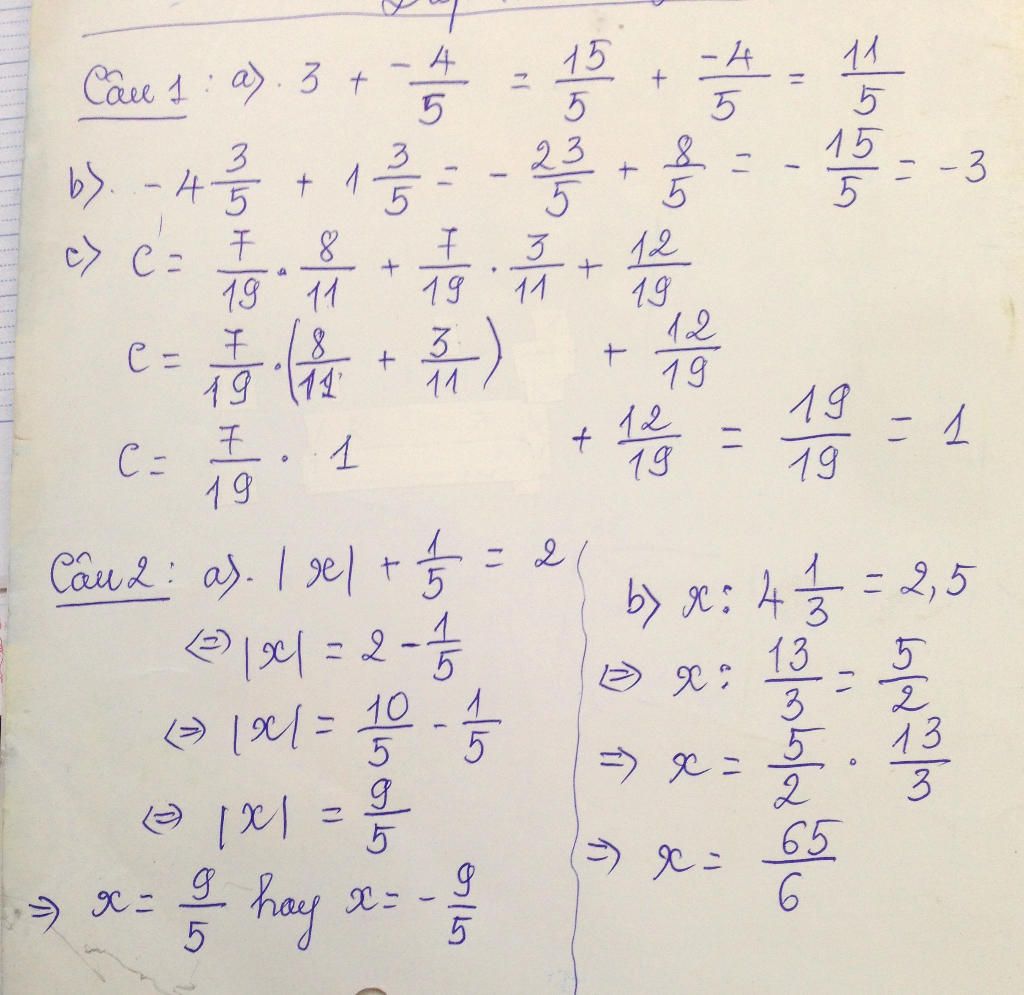 Câu 1 : a) . 3 + -4/5 = 15/5 + -4/5 = 11/5
b) . - 4 3/5 + 1 3/5 = - 23/5 + 8/5 = - 15/5 = -3
c) C = 7/19 . 8/11 + 7/19 . 3/11 + 12/19
C = 7/19 . (8/11 + 3/11) + 12/19
C = 7/19 . 1 + 12/19 = 19/19 = 1
Câu 2 : a) . |x| + 1/5 = 2
⇔ |x| = 2 - 1/5
⇔ |x| = 10/5 - 1/5
⇔ |x| = 9/5
⇒ x = 9/5 hay x = - 9/5
b) x : 4 1/3 = 2,5
⇔ x : 13/3 = 5/2
⇒ x = 5/2 . 13/3
⇒ x = 65/6